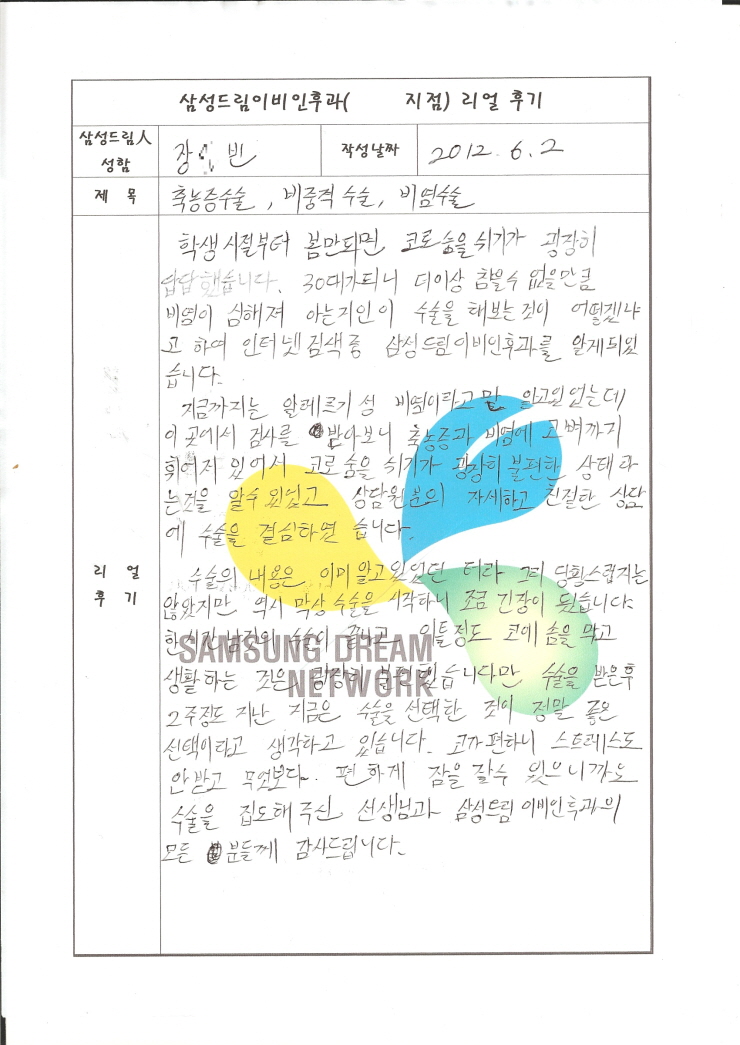 삼성드림이비인후과( 지점) 리얼 후기
삼성드림人 성함
장 빈
작성날짜
2012. 6. 2
제 목
축농증수술, 비중격 수술, 비염수술
리 얼 후 기
학생시절부터 봄만되면 코로 숨을 쉬기가 굉장히
답답했습니다. 30대가되니 더이상 참을수 없을만큼
비염이 심해져 아는지인이 수술을 해보는것이 어떻겠냐
고 하여 인터넷 검색중 삼성드림이비인후과를 알게되었
습니다.
지금까지는 알레르기성 비염이라고만 알고있었는데
이 곳에서 검사를 받아보니 축농증과 비염에 코뼈까지
휘어져 있어서 코로 숨을 쉬기가 굉장히 불편한 상태라
는것을 알수있었고 상담원분의 자세하고 친절한 상담
에 수술을 결심하였습니다.
수술의 내용은 이미 알고있었던 터라 그리 당황스럽지는
않았지만 역시 막상 수술을 시작하니 조금 긴장이 됬습니다.
한시간남짓의 수술이 끝나고 이틀정도 코에 솜을 막고
생활하는 것은 굉장히 불편했습니다만 수술을 받은후
2주정도 지난 지금은 수술을 선택한 것이 정말 좋은
선택이라고 생각하고 있습니다. 코가 편하니 스트레스도
안받고 무엇보다. 편하게 잠을 잘수 있으니까요
수술을 집도해주신 선생님과 삼성드림이비인후과의
모든 분들께 감사드립니다.
SAMSUNG DREAM
NETWORK